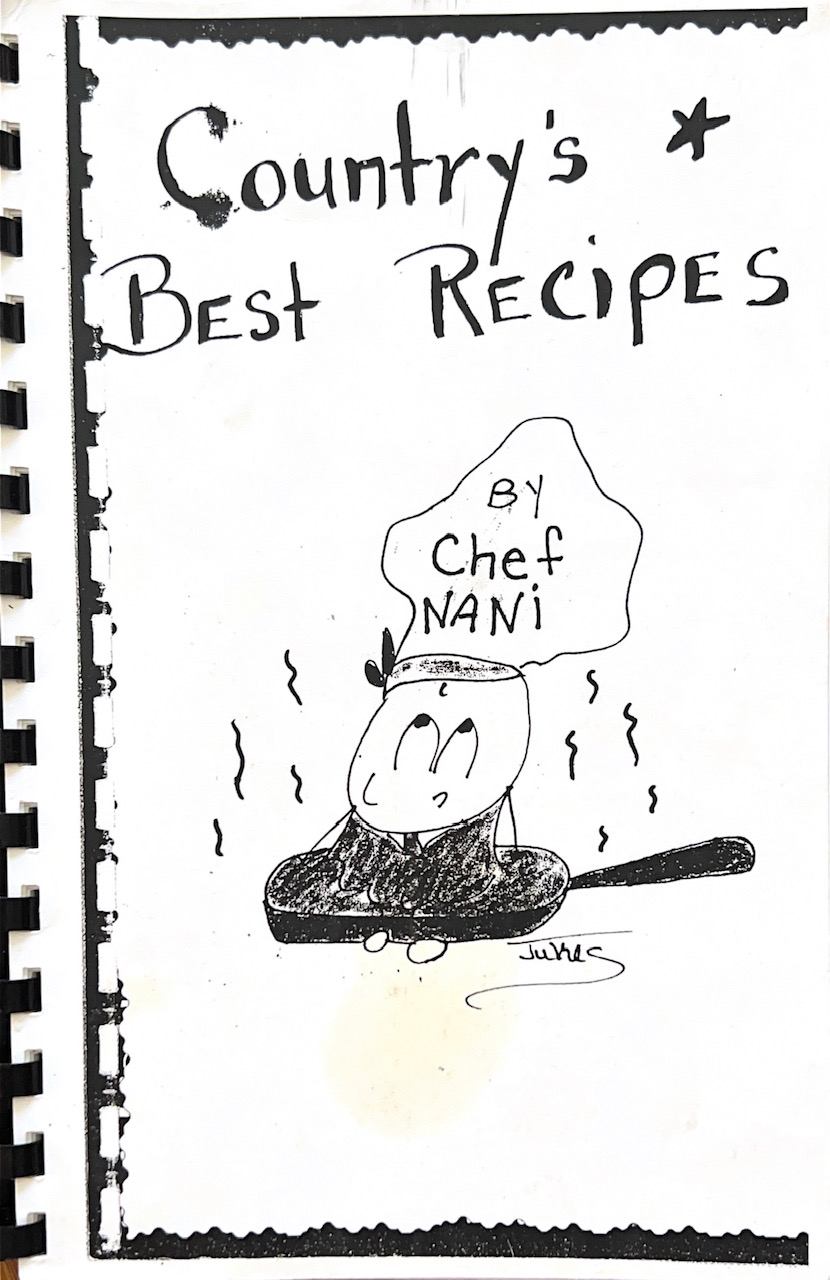 Country's *
BEST RECIPES
BY
Chef
NANi